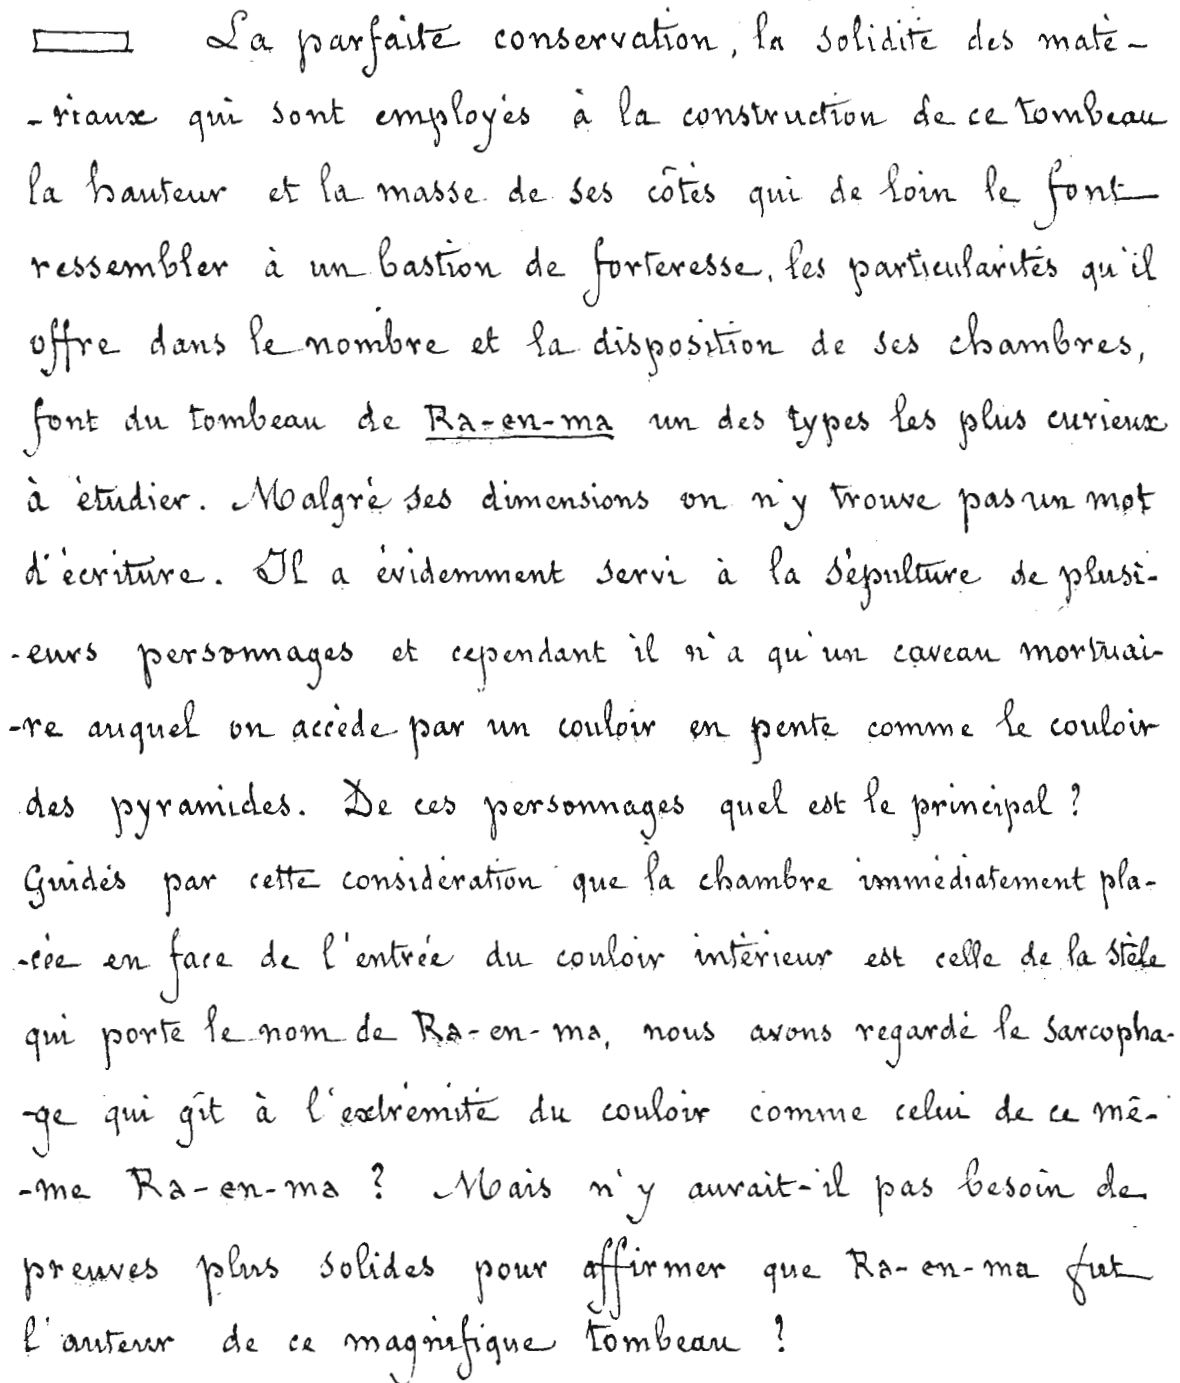 La parfaite conservation, la solidité des maté-
-riaux qui sont employés à la construction de ce tombeau
la hauteur et la masse de ses côtés qui de loin le font
ressembler à un bastion de forteresse, les particularités qu'il
offre dans le nombre et la disposition de ses chambres,
font du tombeau de Ra-en-ma un des types les plus curieux
à étudier. Malgré ses dimensions on n'y trouve pas un mot
d'écriture. Il a évidemment servi à la sépulture de plusi-
-eurs personnages et cependant il n'a qu'un caveau mortuai-
-re auquel on accède par un couloir en pente comme le couloir
des pyramides. De ces personnages quel est le principal ?
Guidés par cette considération que la chambre immédiatement pla-
-cée en face de l'entrée du couloir intérieur est celle de la stèle
qui porte le nom de Ra-en-ma, nous avons regardé le sarcopha-
-ge qui gît à l'extrémité du couloir comme celui de ce mê-
-me Ra-en-ma ? Mais n'y aurait-il pas besoin de
preuves plus solides pour affirmer que Ra-en-ma fut
l'auteur de ce magnifique tombeau ?